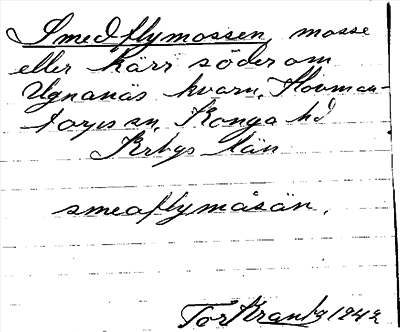 Smedflymossen, mosse
eller kärr söder om
Ugnanäs kvarn, Hovman-
torps sn, Konga hd
Krbgs län
smedflymåsän.
Tor Krantz 1942